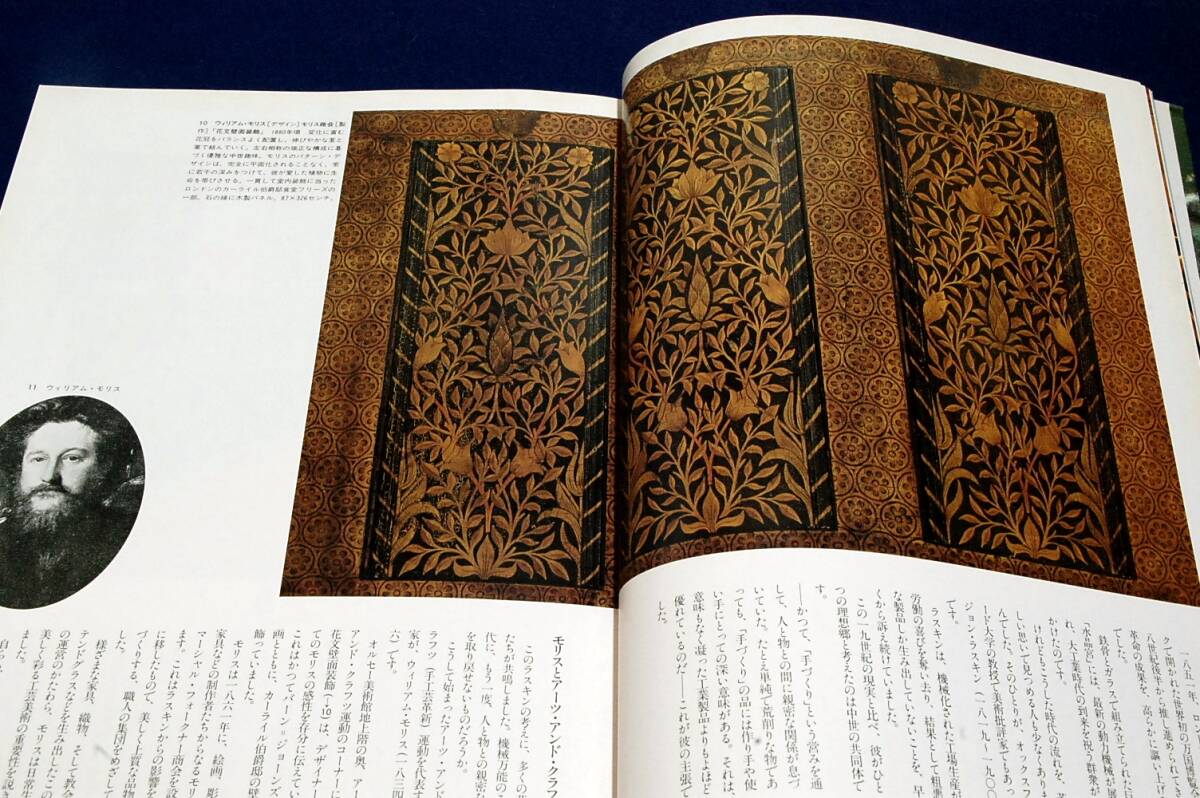 10 ウィリアム・モリス[デザイン]モリス商会[製
作]「花文壁面装飾」 1880年頃 変化に富む
花冠をバランスよく配置し、伸びやかな茎と
葉で結んでいく。左右相称の端正な構成に基
づく優雅な中世趣味。モリスのパターン・デ
ザインは、完全に平面化されることなく、常
に若干の深みをつけて、彼が愛した植物に生
命を帯びさせる。一貫して室内装飾に当った
ロンドンのカーライル伯爵邸食堂フリーズの
一部。石の縁に木製パネル。87×326センチ。
11 ウィリアム・モリス
一八五一年、ロンド
クで開かれた世界初の万国博
八世紀後半から推し進められて
革命の成果を、高らかに謳い上げ
鉄骨とガラスで組み立てられた巨
「水晶宮」には、最新の動力機械が展
れ、大工業時代の到来を祝う群衆が
かけたのです。
けれどもこうした時代の流れを、苦
しい思いで見つめる人も少なくありま
んでした。そのひとりが、オックスフ
ード大学の教授で美術批評家でもあっ
ジョン・ラスキン(一八一九―一九〇〇
です。
ラスキンは、機械化された工場生産
労働の喜びを奪い去り、結果として粗悪
な製品しか生み出していないことを、早
くから訴え続けていました。
この一九世紀の現実と比べ、彼がひと
つの理想郷と考えたのは中世の共同体で
す。
――かつて、「手づくり」という営みを通
して、人と物との間に親密な関係が息づ
いていた。たとえ単純で荒削りな物であ
っても、「手づくり」の品には作り手や使
い手にとっての深い意味がある。それは、
意味もなく凝った工業製品よりもよほど
優れているのだ――これが彼の主張で
した。
モリスとアーツ・アンド・クラフ
このラスキンの考えに、多くの
たちが共鳴しました。機械万能の
代に、もう一度、人と物との親密な
を取り戻せないものだろうか。
こうして始まったアーツ・アンド
ラフツ(手工芸革新)運動を代表す
家が、ウィリアム・モリス(一八三四
六)です。
オルセー美術館地上階の奥、アー
アンド・クラフツ運動のコーナーに
花文壁面装飾(-10)は、デザイナー
てのモリスの感性を存分に伝えてい
これはかつてバーン=ジョーンズ
画とともに、カーライル伯爵邸の壁
飾っていました。
モリスは一八六一年に、絵画、彫
家具などの制作者たちからなるモリ
マーシャル・フォークナー商会を設
ます。これはラスキンからの影響を
に移したもので、美しく上質な品物
づくりする、職人の集団をめざして
した。
様ざまな家具、織物、そして教会
テンドグラスなどを生み出したこの
の運営のかたわら、モリスは日常生
美しく彩る工芸美術の重要性を説き
ました。